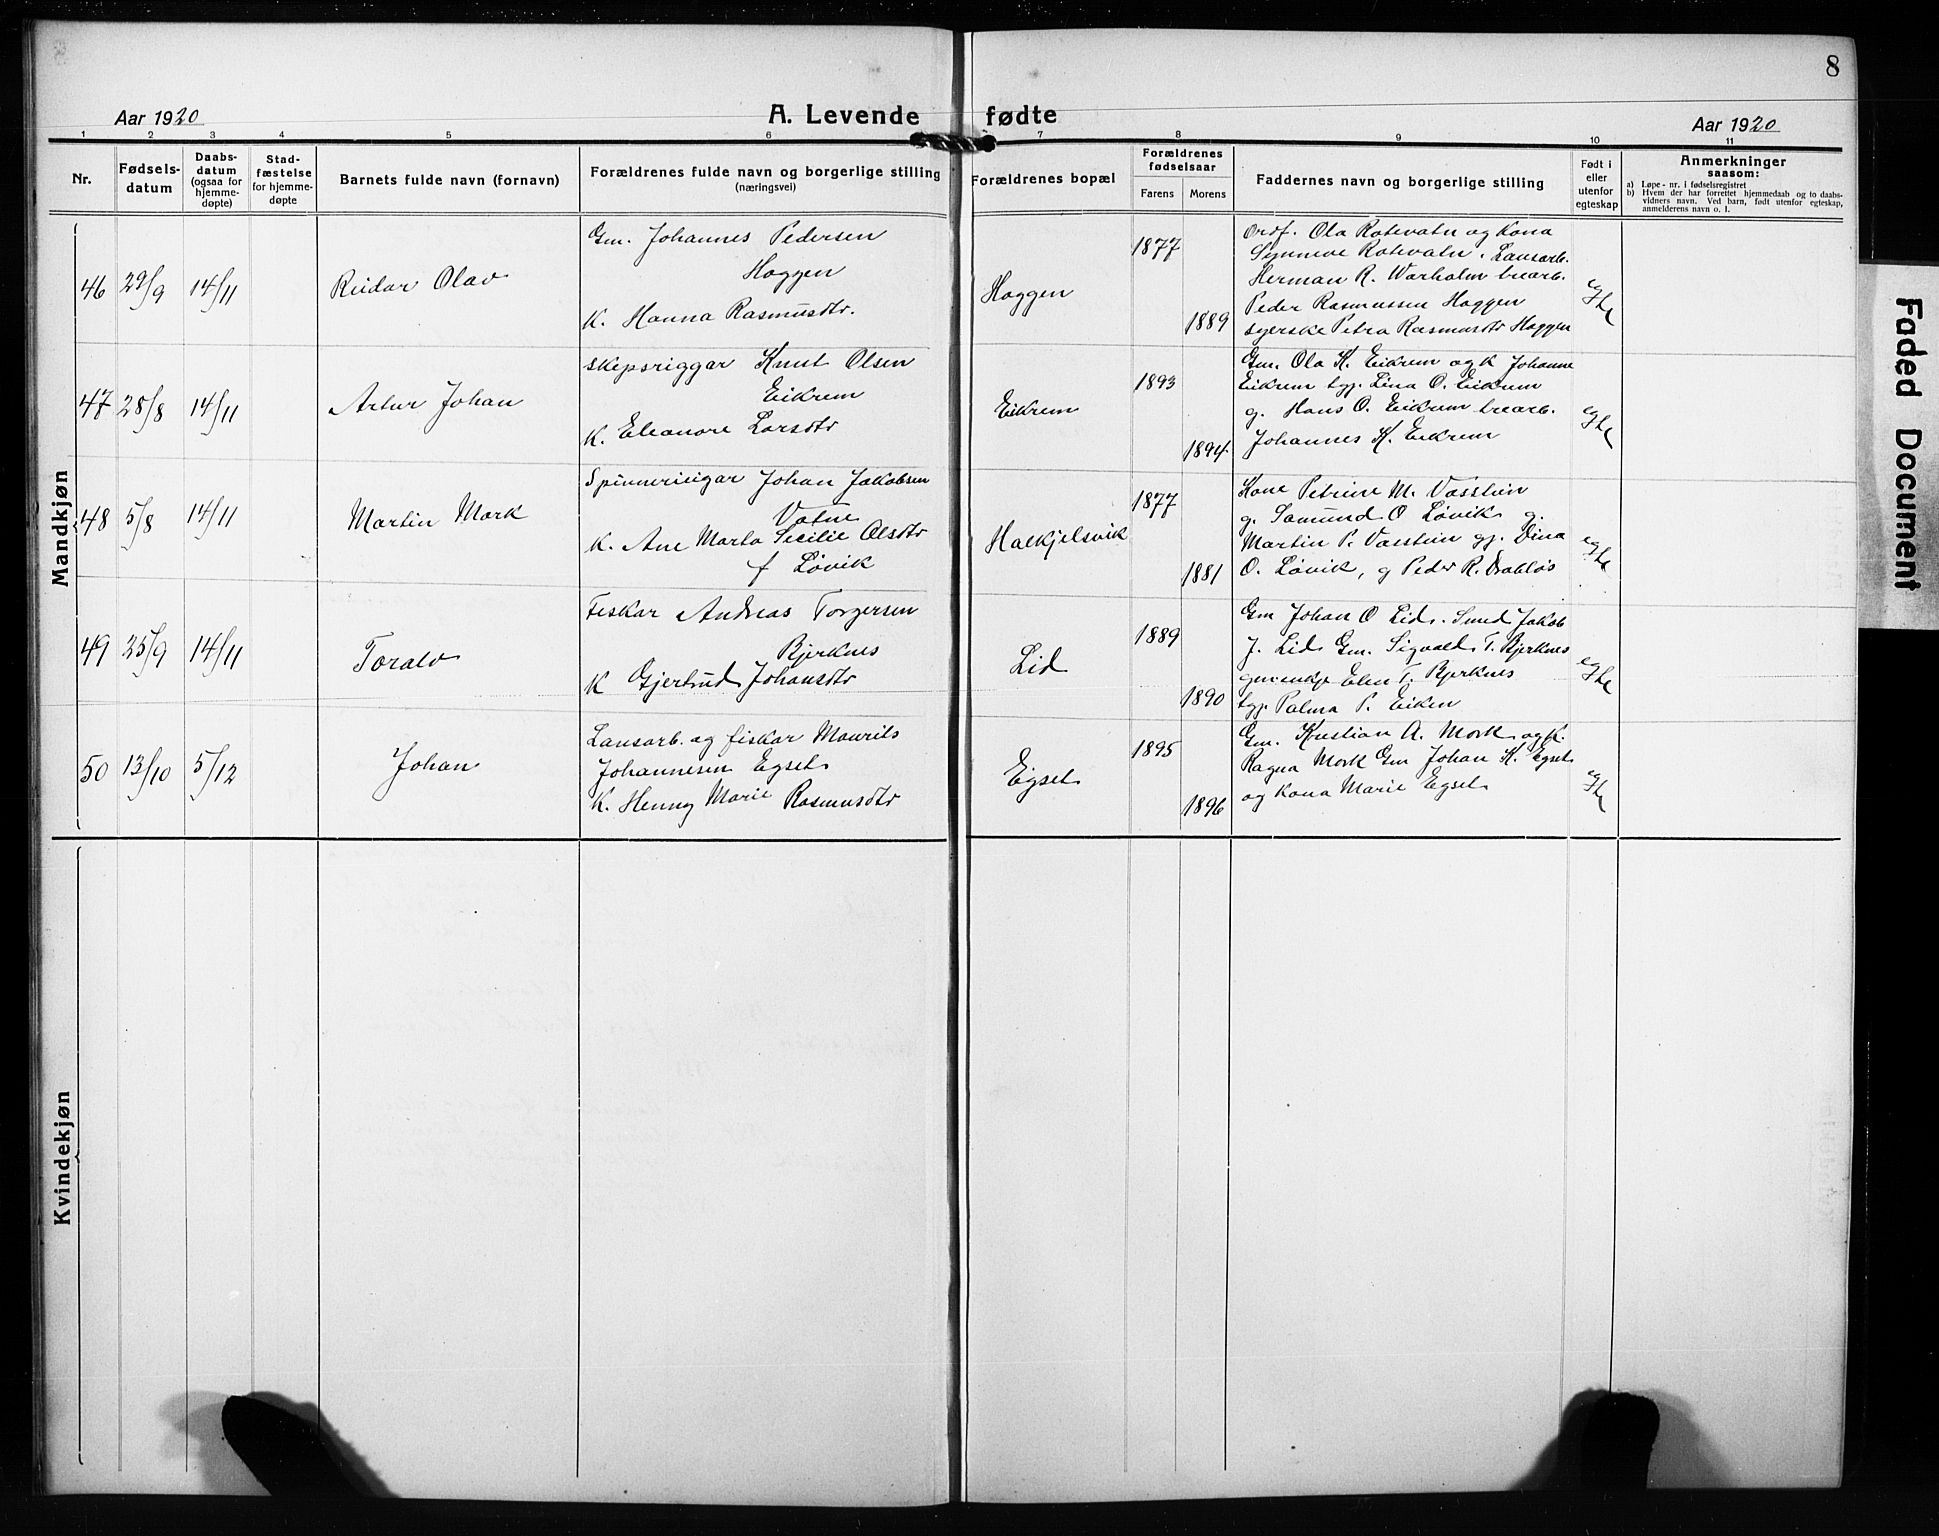 8
Aar 1920
A. Levende fødte
Aar 1920
1 2 3 4 5 6 7 8 9 10 11
Nr.
Fødsels-
datum
Daabs-
datum
(ogsaa for
hjemme-
døpte)
Stad-
fæstelse
for hjemme-
døpte
Barnets fulde navn (fornavn)
Forældrenes fulde navn og borgerlige stilling
(næringsvei)
Forældrenes bopæl
Forældrenes
fødselsaar
Farens Morens
Faddernes navn og borgerlige stilling
Født i
eller
utenfor
egteskap
Anmerkninger
saasom:
a) Løpe-nr. i fødselsregistret
b) Hvem der har forrettet hjemmedaab og to daabs-
vidners navn. Ved barn, født utenfor egteskap,
anmelderens navn o. l.
Mandkjøn
46 29/9 14/11
Reidar Olav
Gm. Johannes Pedersen
Haggen
K. Hanna Rasmusdtr.
Haggen
1877
1889
Ordf. Ola Rotevatn og Kona
Synneve Rotevatn. Lausarb.
Herman R. Warholm brearb.
Peder Rasmussen Haggen
syerske Petra Rasmusdtr Haggen
egte
47 28/8 14/11
Artur Johan
Skepsriggar Knut Olsen
Eikrem
K. Eleanore Larsdtr
Eikrem
1893
1894
Gm. Ola K. Eikrem og K Johanne
Eikrem tgp. Lina O. Eikrem
g. Hans O. Eikrem brearb.
Johannes K. Eikrem
egte
48 5/8 14/11
Martin Mark
Spinnerieigar Johan Jakobsen
Vatne
K. Ane Marta Secilie Olsdtr
f Løvik
Halkjelsvik
1877
1881
Kone Petrine M. Vasstein
g. Samund O Løvik g.
Martin P. Vasstein gp. Dina
O. Løvik, g Peder R. Drabløs
egte
49 25/9 14/11
Toralv
Fiskar Andreas Torgersen
Bjerknes
K Gjertrud Johansdtr
Lid
1889
1890
Gm Johan O Lid. Smed Jakob
J. Lid Gm. Sigvald T. Bjerknes
gmenkje Elen T. Bjerknes
tgp. Palma P. Eiken
egte
50 13/10 5/12
Johan
Lausarb. og fiskar Maurits
Johannesen Egset
K. Henny Marie Rasmusdtr
Egset
1895
1896
Gm. Kristian A. Mork og K.
Ragna Mork Gm Johan K. Egset
og Kona Marie Egset
egte
Kvindekjøn
Faded Document